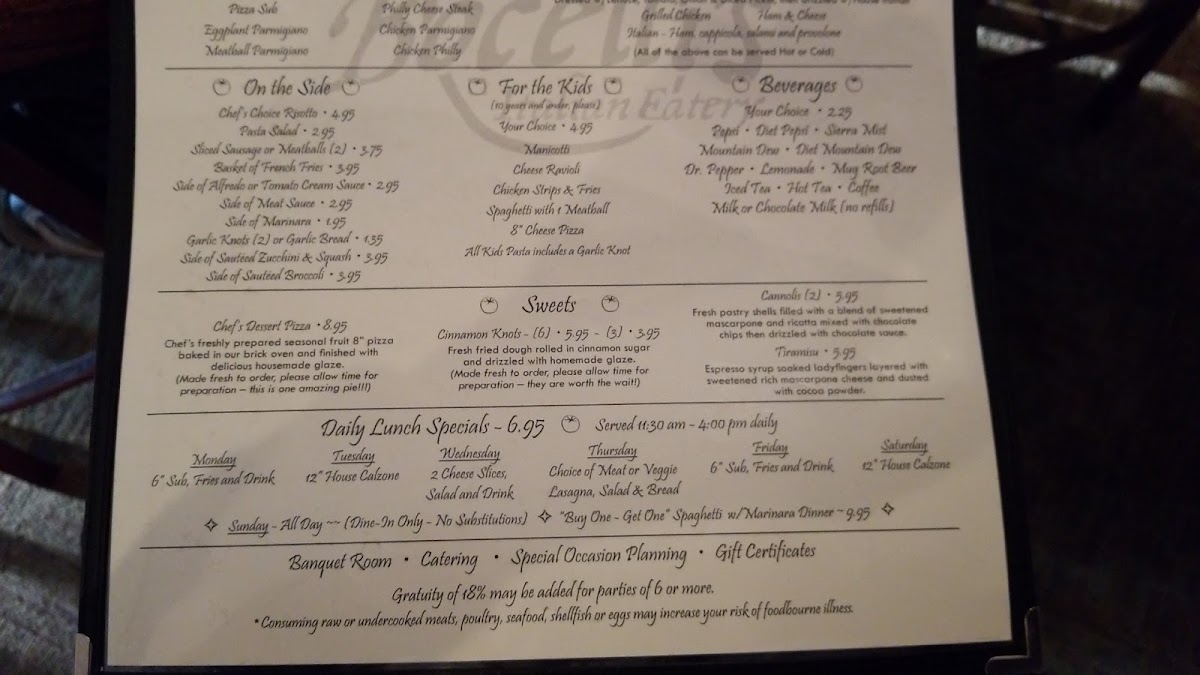 Pizza Sub
Eggplant Parmigiano
Meatball Parmigiano
Philly Cheese Steak
Chicken Parmigiano
Chicken Philly
Grilled Chicken Ham & Cheese
Italian - Ham, cappicola, salami and provolone
(All of the above can be served Hot or Cold)
Italian Eatery
On the Side
Chef's Choice Risotto • 4.95
Pasta Salad • 2.95
Sliced Sausage or Meatballs (2) • 3.75
Basket of French Fries • 3.95
Side of Alfredo or Tomato Cream Sauce • 2.95
Side of Meat Sauce • 2.95
Side of Marinara • 1.95
Garlic Knots (2) or Garlic Bread • 1.35
Side of Sautéed Zucchini & Squash • 3.95
Side of Sautéed Broccoli • 3.95
For the Kids
(10 years and under, please)
Your Choice • 4.95
Manicotti
Cheese Ravioli
Chicken Strips & Fries
Spaghetti with 1 Meatball
8" Cheese Pizza
All Kids Pasta includes a Garlic Knot
Beverages
Your Choice • 2.25
Pepsi • Diet Pepsi • Sierra Mist
Mountain Dew • Diet Mountain Dew
Dr. Pepper • Lemonade • Mug Root Beer
Iced Tea • Hot Tea • Coffee
Milk or Chocolate Milk (no refills)
Sweets
Chef's Dessert Pizza • 8.95
Chef's freshly prepared seasonal fruit 8" pizza
baked in our brick oven and finished with
delicious housemade glaze.
(Made fresh to order, please allow time for
preparation – this is one amazing pie!!!)
Cinnamon Knots - (6) • 5.95 - (3) • 3.95
Fresh fried dough rolled in cinnamon sugar
and drizzled with homemade glaze.
(Made fresh to order, please allow time for
preparation – they are worth the wait!)
Cannolis (2) • 5.95
Fresh pastry shells filled with a blend of sweetened
mascarpone and ricotta mixed with chocolate
chips then drizzled with chocolate sauce.
Tiramisu • 5.95
Espresso syrup soaked ladyfingers layered with
sweetened rich mascarpone cheese and dusted
with cocoa powder.
Daily Lunch Specials - 6.95 Served 11:30 am - 4:00 pm daily
Monday
6" Sub, Fries and Drink
Tuesday
12" House Calzone
Wednesday
2 Cheese Slices,
Salad and Drink
Thursday
Choice of Meat or Veggie
Lasagna, Salad & Bread
Friday
6" Sub, Fries and Drink
Saturday
12" House Calzone
Sunday - All Day ~~ (Dine-In Only - No Substitutions) "Buy One - Get One" Spaghetti w/Marinara Dinner ~ 9.95
Banquet Room • Catering • Special Occasion Planning • Gift Certificates
Gratuity of 18% may be added for parties of 6 or more.
*Consuming raw or undercooked meats, poultry, seafood, shellfish or eggs may increase your risk of foodbourne illness.